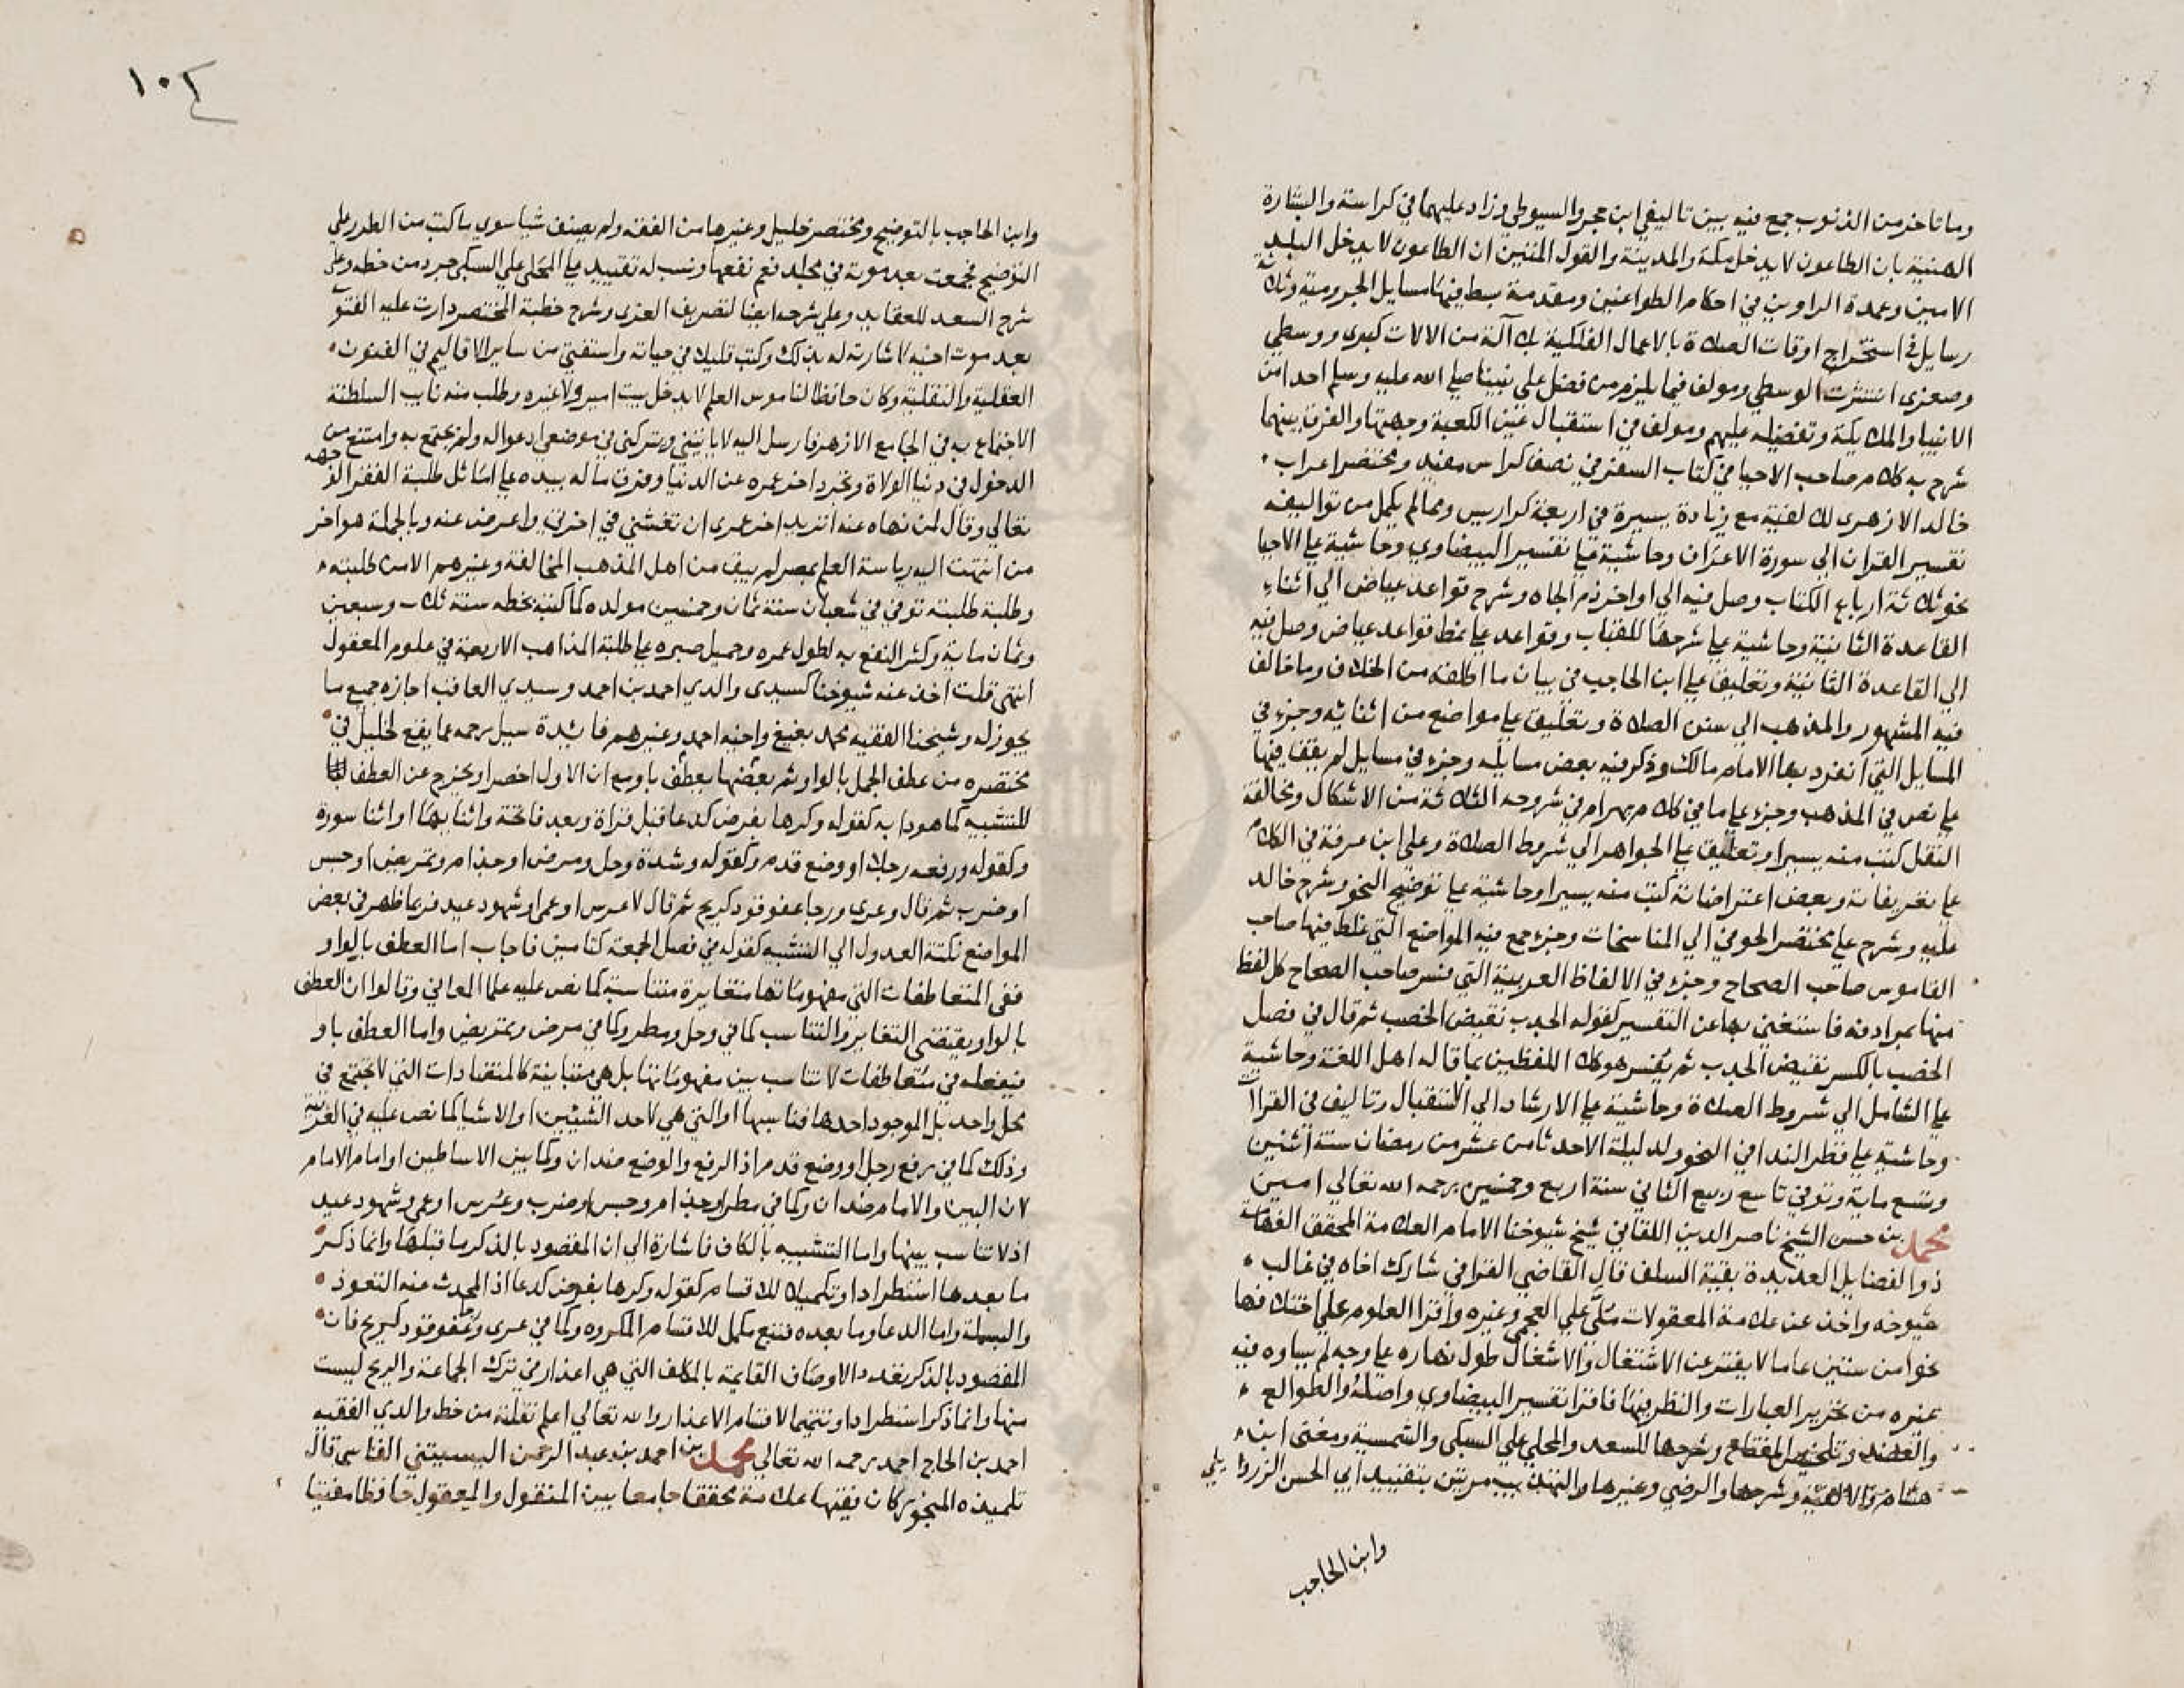 وما تاخر من الذنوب جمع فيه بين تاليفي ابن حجر والسيوطي وزاد عليهما في كراسة والبشارة
الهنيية بان الطاعون لا يدخل مكة والمدينة والقول المتين ان الطاعون لا يدخل البلد
الامين وعمدة الراوين في احكام الطواعين ومقدمة بسط فيها مسايل الجرومية وثلاثة
رسايل في استخراج اوقات الصلاة بالاعمال الفلكية بلا آلة من الالات كبرى ووسطي
وصغرى انتشرت الوسطي ومولف فيما يلزم من فضل علي نبينا صلي الله عليه وسلم احدا من
الانبيا والملايكة وتفضيله عليهم ومولف في استقبال عين الكعبة وجهتها والفرق بينهما
شرح به كلام صاحب الاحيا في كتاب السفر في نصف كراس مفيد ومختصر اعراب
خالد الازهرى للالفية مع زيادة يسيرة في اربعة كراريس ومما لم يكمل من تواليفه
تفسير القران الي سورة الاعراف وحاشية علي تفسير البيضاوي وحاشية علي الاحيا
نحو ثلاثة ارباع الكتاب وصل فيه الي اواخر ذم الجاه وشرح قواعد عياض الي اثناء
القاعدة الثانية وحاشية علي شرحها للقباب وقواعد علي نمط قواعد عياض وصل فيه
الي القاعدة الثانية وتعليق علي ابن الحاجب في بيان ما اطلقه من الخلاف وما خالف
فيه المشهور والمذهب الي سنن الصلاة وتعليق علي مواضع من اثنائه وجزء في
المسايل التي انفرد بها الامام مالك وذكر فيه بعض مسايله وجزء في مسايل لم يقف فيها
علي نص في المذهب وجزء علي ما في كلام بهرام في شروحه الثلاثة من الاشكال ومخالفة
النقل كتب منه يسيرا وتعليق علي الجواهر الي شروط الصلاة وعلي ابن عرفة في الكلام
علي تعريفاته وبعض اعتراضاته كتب منه يسيرا وحاشية علي توضيح النحو وشرح خالد
عليه وشرح علي مختصر الحوفي الي المناسخات وجزء جمع فيه المواضع التي غلط فيها صاحب
القاموس صاحب الصحاح وجزء في الالفاظ العربية التي فسر صاحب الصحاح كل لفظ
منها بمرادفه فاستغني بها عن التفسير كقوله الجدب نقيض الخصب ثم قال في فصل
الخصب بالكسر نقيض الجدب ثم يفسر هو كلا اللفظين بما قاله اهل اللغة وحاشية
علي الشامل الي شروط الصلاة وحاشية علي الارشاد الي الاستقبال وتاليف في القراآت
وحاشية علي قطر الندا في النحو ولد ليلة الاحد ثامن عشر من رمضان سنة اثنين
وتسع ماية وتوفي تاسع ربيع الثاني سنة اربع وخمسين رحمه الله تعالي امين
محمد بن حسن الشيخ ناصر الدين اللقاني شيخ شيوخنا الامام العلامة المحقق الفهامة
ذو الفضايل العديدة بقية السلف قال القاضي القرافي شارك اخاه في غالب
شيوخه واخذ عن علامة المعقولات ملا علي العجمي وغيره واقرا العلوم علي اختلافها
نحوا من ستين عاما لا يفتر عن الاشتغال والاشغال طول نهاره علي وجه لم يساوه فيه
غيره من تحرير العبارات والنظر فيها فاقرا تفسير البيضاوي واصله والطوالع
والعضد وتلخيص المفتاح وشرحها للسعد والمحلي علي السبكي والشمسية ومغني ابن
هشام والالفية وشرحها والرضي وغيرها والتهذيب مرتين بتقييد ابي الحسن الزرويلي
وابن الحاجب
١٠٢
وابن الحاجب بالتوضيح ومختصر خليل وغيرها من الفقه ولم يصنف شيا سوي ما كتب من الطرر علي
التوضيح فجمعت بعد موته في مجلد فعم نفعها ونسب له تقييد علي المحلي علي السبكي جرد من خطه وعلي
شرح السعد للعقايد وعلي شرحه ايضا لتصريف العزى وشرح خطبة المختصر دارت عليه الفتوى
بعد موت اخيه لاشارته له بذلك وكتب قليلا في حياته واستفتي من ساير الاقاليم في الفنون
العقلية والنقلية وكان حافظا لناموس العلم لا يدخل بيت امير ولا غيره وطلب منه نايب السلطنة
الاجتماع به في الجامع الازهر فارسل اليه لا ياتيني ويتركني في موضعي ادعوا له ولم يجتمع به وامتنع من
الدخول في دنيا الولاة وتجرد اخر عمره عن الدنيا وفرق ماله بيده علي اماثل طلبة الفقرا لوجه
تعالي وقال لمن نهاه عنه اتريد اخر عمرى ان تغشني في اخرتي واعرض عنه وبالجملة هو اخر
من انتهت اليه رياسة العلم بمصر لم يبق من اهل المذهب المخالفة وغيرهم الا من طلبته
وطلبة طلبته توفي في شعبان سنة ثمان وخمسين مولده كما كتبه بخطه سنة ثلاث وسبعين
وثمان ماية وكثر النفع به لطول عمره وجميل صبره علي طلبة المذاهب الاربعة في علوم المعقول
انتهى قلت اخذ عنه شيوخنا كسيدى والدي احمد بن احمد وسيدي العاقب اجازه جميع ما
يجوز له وشيخنا الفقيه محمد بغيغ واخيه احمد وغيرهم فايدة سيل رحمه عما يقع لخليل في
مختصره من عطف الجمل بالواو ثم بعضها بعطف باو مع ان الاول اخصر او يخرج عن العطف
للتشبيه كما هو دابه كقوله وكرها بفرض كدعا قبل قراة وبعد فاتحة واثنايها او اثنا سورة
وكقوله ورفعه رجلا او وضع قدم وكقوله وشدة وحل ومرض او جذام وتمريض او حبس
او ضرب ثم قال وعرى ورجا عفو قود كريح ثم قال لا عرس او عمى او شهود عيد فربما ظهر في بعض
المواضع نكتة العدول الي التشبيه كقوله في فصل الجمعة كتامين فاجاب اما العطف بالواو
ففي المتعاطفات التي مفهوماتها متغايرة متناسبة كما نص عليه علما المعاني وقالوا ان العطف
بالواو يقتضي التغاير والتناسب كما في وحل ومطر وكما في مرض وتمريض واما العطف باو
فيفعله في متعاطفات لا تناسب بين مفهوماتها بل هي متباينة كالمتضادات التي لا تجتمع في
محل واحد بل الموجود احدها فناسبها او التي هي لاحد الشيئين او الاشيا كما نص عليه في العربية
وذلك كما في رفع رجل او وضع قدم اذ الرفع والوضع ضدان وكما بين الاساطين او امام الامام
لان البين والامام ضدان وكما في مطر او جذام وحبس او ضرب وعرس او عمى وشهود عيد
اذ لا تناسب بينها واما التشبيه بالكاف فاشارة الي ان المقصود بالذكر ما قبلها وانما ذكر
ما بعدها استطرادا وتكميلا للاقسام كقوله وكرها بفرض كدعا اذ المحدث عنه التعوذ
والبسملة واما الدعا وما بعده فتبع مكمل للاقسام المكروه وكما في عرى ورجا عفو قود كريح فان
المقصود بالذكر تعدد الاوصاف القايمة بالمكلف التي هي اعذار في ترك الجماعة والريح ليست
منها وانما ذكر استطرادا وتتميما لاقسام الاعذار والله تعالي اعلم نقلته من خط والدي الفقيه
احمد بن الحاج احمد رحمه الله تعالي محمد بن احمد بن عبد الرحمن اليسيتني الفاسي قال
تلميذه المنجور كان فقيها علامة محققا جامعا بين المنقول والمعقول حافظا مفتيا